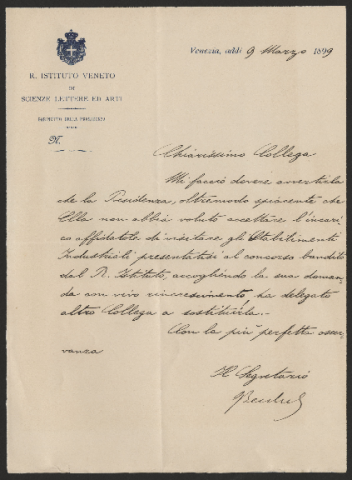 R. ISTITUTO VENETO
DI
SCIENZE LETTERE ED ARTI
N.
Venezia, addì 9 Marzo 1899
Chiarissimo Collega
Mi faccio dovere avvertirla
che la Presidenza, oltremodo spiacente che
Ella non abbia voluto accettare l'incari
co affidatole di visitare gli Stabilimenti
Industriali presentatisi al concorso bandito
dal R. Istituto, accogliendo la sua doman
da con vivo rincrescimento, ha delegato
altro Collega a sostituirla.
Con la più perfetta osser
vanza
Il Segretario